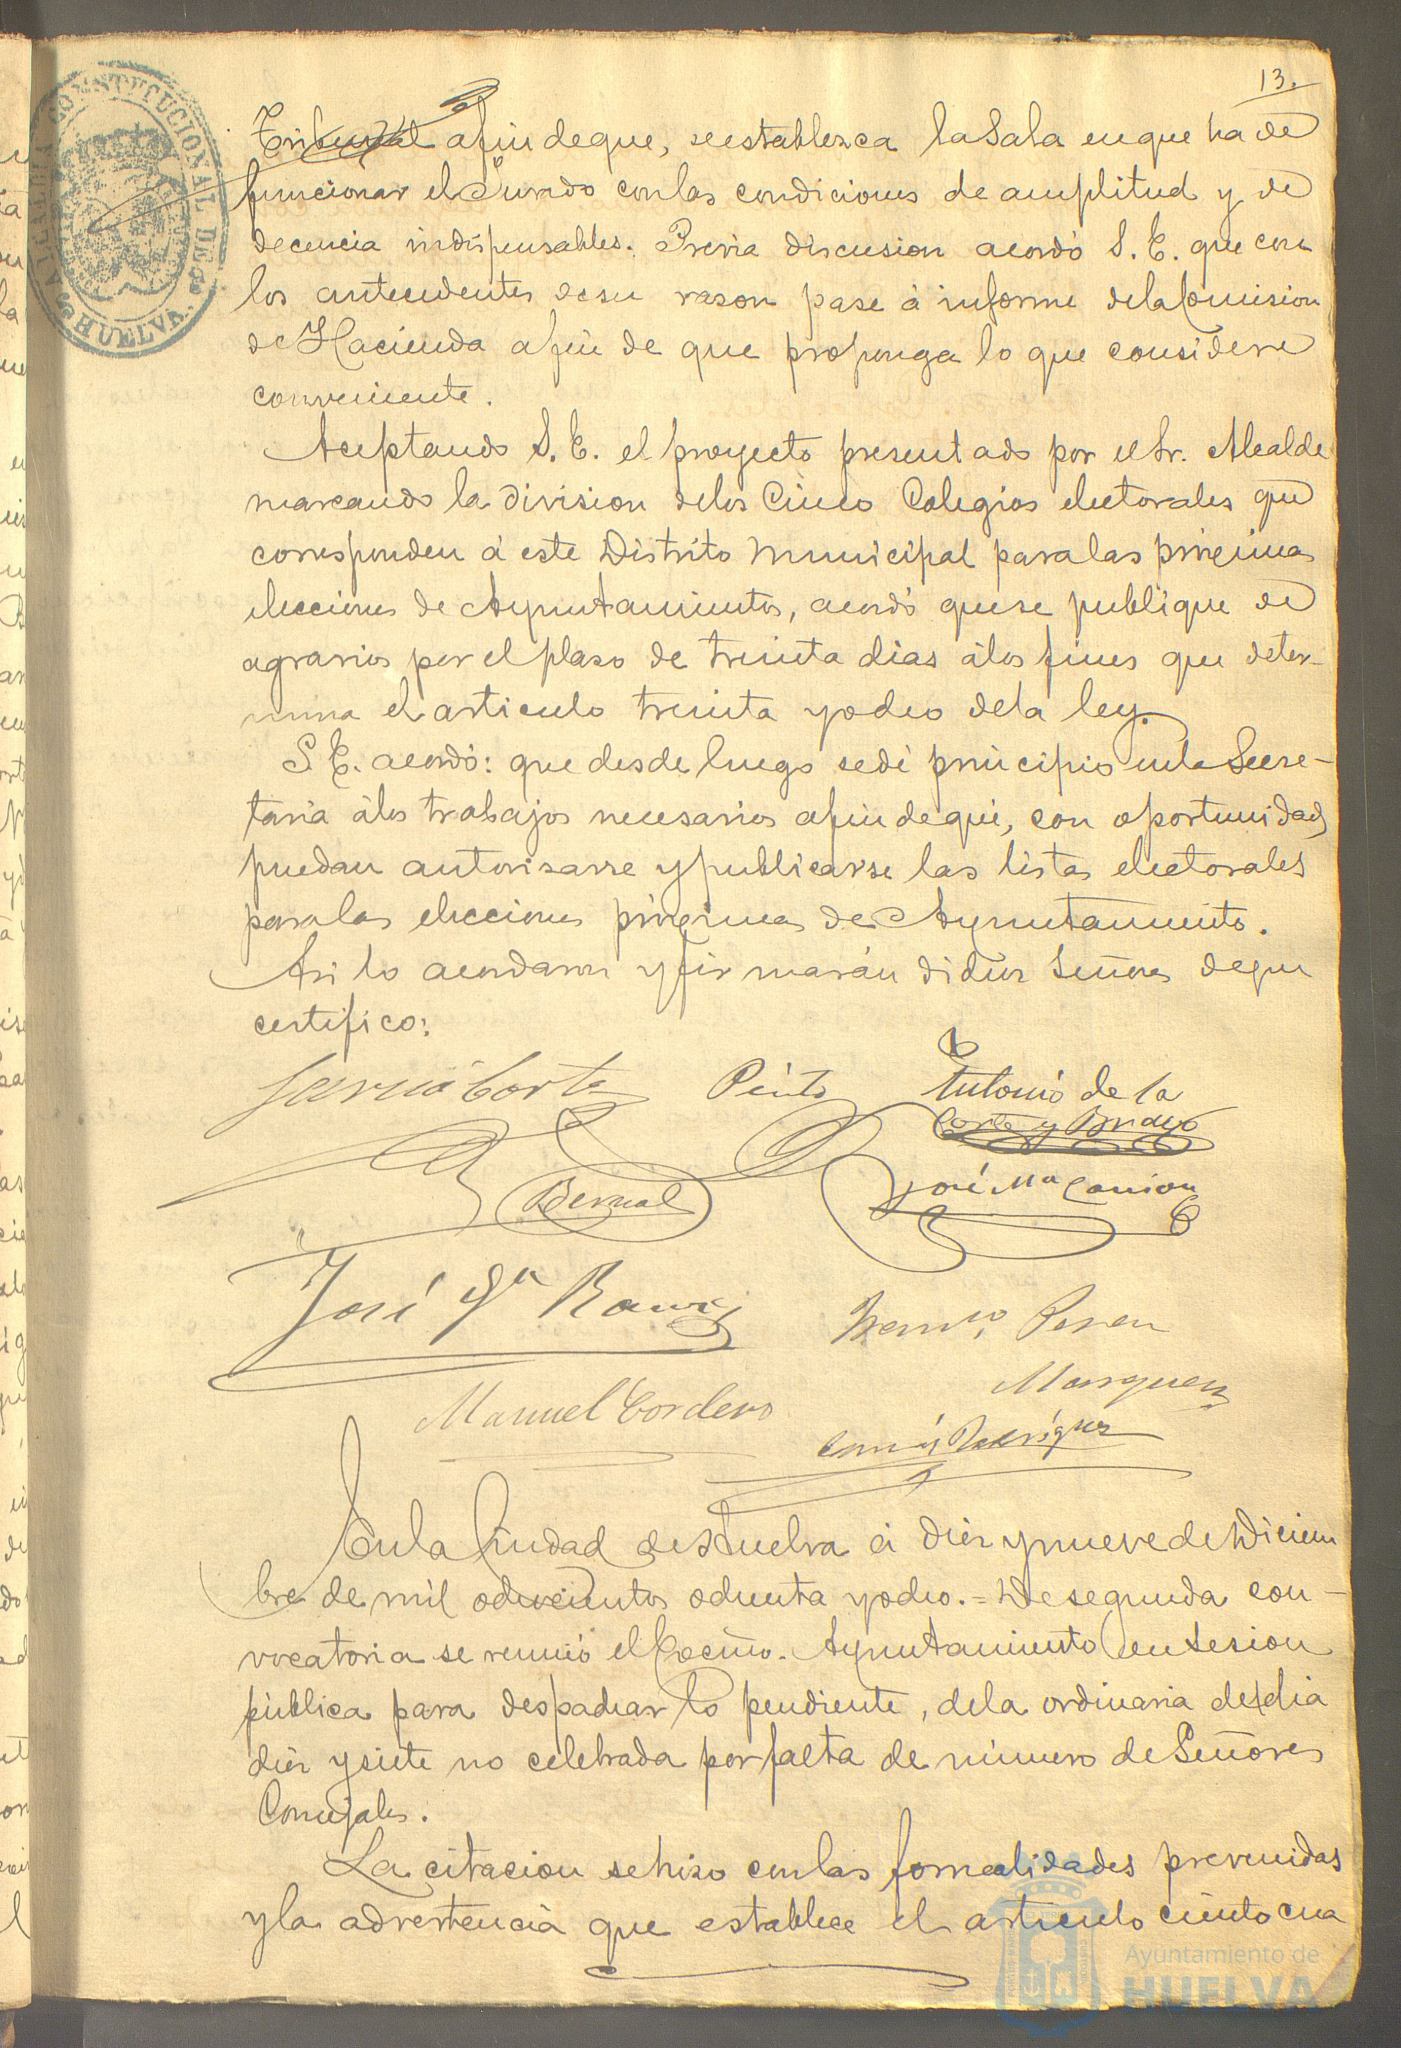 13.
ALCALDIA CONSTITUCIONAL DE HUELVA.
Tribunal afin de que, se establezca la Sala en que ha de
funcionar el Jurado con las condiciones de amplitud y de
decencia indispensables. Previa discusion acordó S. E. que con
los antecedentes de su razon pase á informe de la Comision
de Hacienda afin de que proponga lo que considere
conveniente.
Aceptando S. E. el proyecto presentado por el Sr. Alcalde
marcando la division de los Cinco Colegios electorales que
corresponden á este Distrito Municipal para las proximas
elecciones de Ayuntamientos, acordó que se publique de
agravios por el plazo de treinta dias á los fines que deter-
mina el articulo treinta y ocho de la ley.
S. E. acordó: que desde luego se dé principio en la Secre-
taria á los trabajos necesarios afin de que, con oportunidad
puedan autorizarse y publicarse las listas electorales
para las elecciones proximas de Ayuntamiento.
Asi lo acordaron y firmarán dichos Señores de que
certifico:
Garcia Corte Pinto Antonio de la
Corte y Bravo
Bernal José Mª
José Gª Ramz Perez
Marquez
Manuel Cordero
Rodriguez
En la Ciudad de Huelva á diez y nueve de Diciem
bre de mil ochocientos ochenta y ocho. = De segunda con-
vocatoria se reunió el Excmo. Ayuntamiento en Sesion
pública para despachar lo pendiente, de la ordinaria del dia
diez y siete no celebrada por falta de número de Señores
Concejales.
La citacion se hizo con las formalidades prevenidas
y la advertencia que establece el articulo ciento cua
Ayuntamiento de
HUELVA